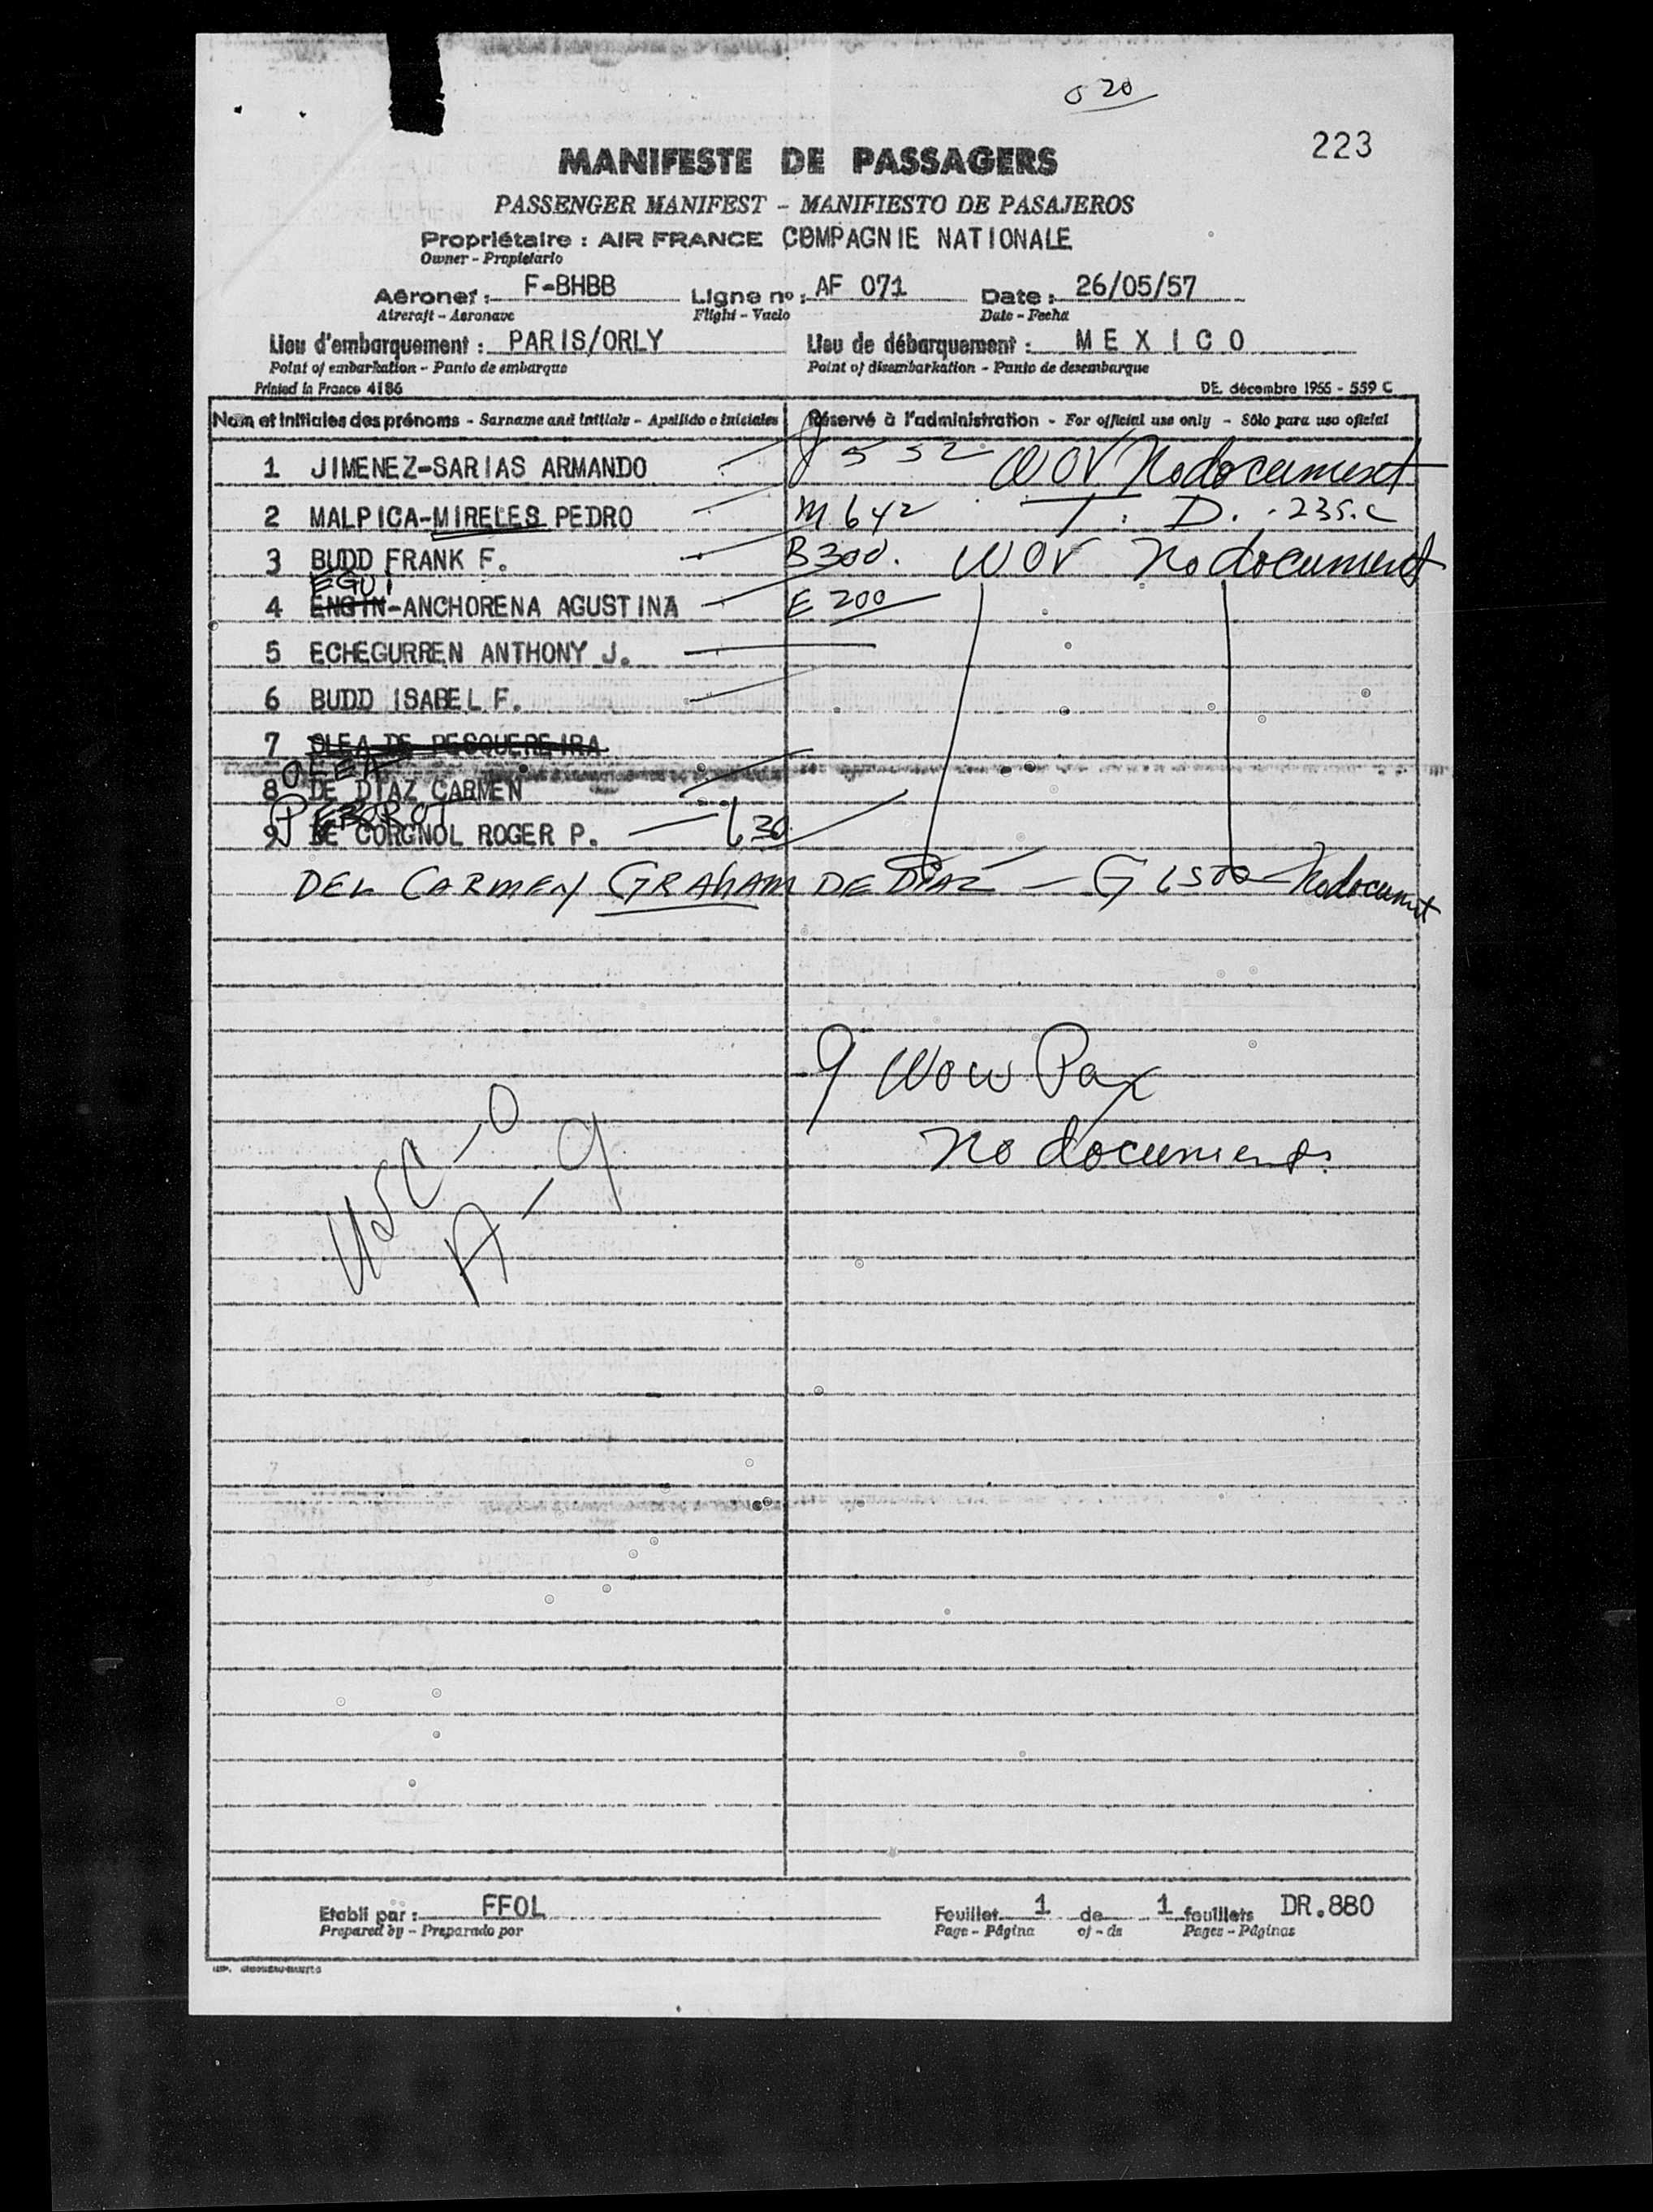 020
223
MANIFESTE DE PASSAGERS
PASSENGER MANIFEST - MANIFIESTO DE PASAJEROS
Propriétaire : AIR FRANCE COMPAGNIE NATIONALE
Owner - Propietario
Aéronef : F-BHBB Ligne nº : AF 071 Date : 26/05/57
Aircraft - Aeronave Flight - Vuelo Date - Fecha
Lieu d'embarquement : PARIS/ORLY Lieu de débarquement : MEXICO
Point of embarkation - Punto de embarque Point of disembarkation - Punto de desembarque
Printed in France 4186 DE. décembre 1955 - 559 C
Nom et initiales des prénoms - Surname and initials - Apellido e iniciales Réservé à l'administration - For official use only - Sólo para uso oficial
1 JIMENEZ-SARIAS ARMANDO J 552 WOV No document
2 MALPICA-MIRELES PEDRO M 642 T. D. 235.C
3 BUDD FRANK F. B 300. WOV No document
EGUI
4 ENGIN-ANCHORENA AGUSTINA E 200
5 ECHEGURREN ANTHONY J.
6 BUDD ISABEL F.
7 OLEA DE PESQUEREIRA
OLEA
8 DE DIAZ CARMEN
PERROT
9 DE CORGNOL ROGER P. 630
DEL CARMEN GRAHAM DE DIAZ - G 6500 - No document
9 WOW Pax
No documents
USC - 0
A - 9
Etabli par : FFOL Feuillet 1 de 1 feuillets DR.880
Prepared by - Preparado por Page - Página of - de Pages - Páginas